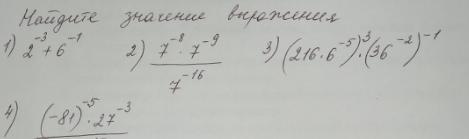 Найдите значение выражения
1) 2⁻³ + 6⁻¹  2) (7⁻⁸ · 7⁻⁹) / 7⁻¹⁶  3) (216 · 6⁻⁵)³ · (36⁻²)⁻¹
4) (-81)⁻⁵ · 27⁻³